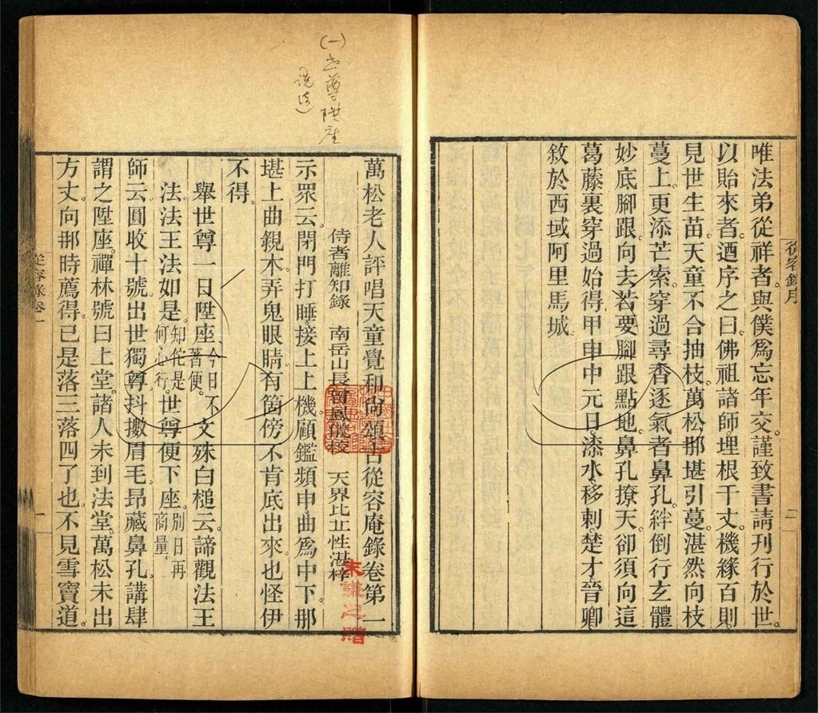 唯法弟從祥者。與僕爲忘年交。謹致書請刊行於世。
以貽來者。迺序之曰。佛祖諸師埋根千丈。機緣百則。
見世生苗。天童不合抽枝。萬松那堪引蔓。湛然向枝
蔓上。更添芒索。穿過尋香逐氣者鼻孔。絆倒行玄體
妙底腳跟。向去若要腳跟點地。鼻孔撩天。卻須向這
葛藤裏穿過始得。甲申中元日。漆水移剌楚才晉卿
敘於西域阿里馬城。
從容錄序
萬松老人評唱天童覺和尚頌古從容庵錄卷第一
侍者離知錄 南岳山長 天界比丘性湛梓
示眾云。閉門打睡。接上上機。顧鑑頻申。曲爲中下。那
堪上曲錄木。弄鬼眼睛。有箇傍不肯底出來。也怪伊
不得。
舉世尊一日陞座。今日不著便。文殊白槌云。諦觀法王
法。法王法如是。知他是何心行。世尊便下座。別日再商量。
師云。圓收十號。出世獨尊。抖擻眉毛。昂藏鼻孔。講肆
謂之陞座。禪林號曰上堂。諸人未到法堂。萬松未出
方丈。向那時薦得。已是落三落四了也。不見雪竇道。
從容錄卷一
一
(一)世尊陞座